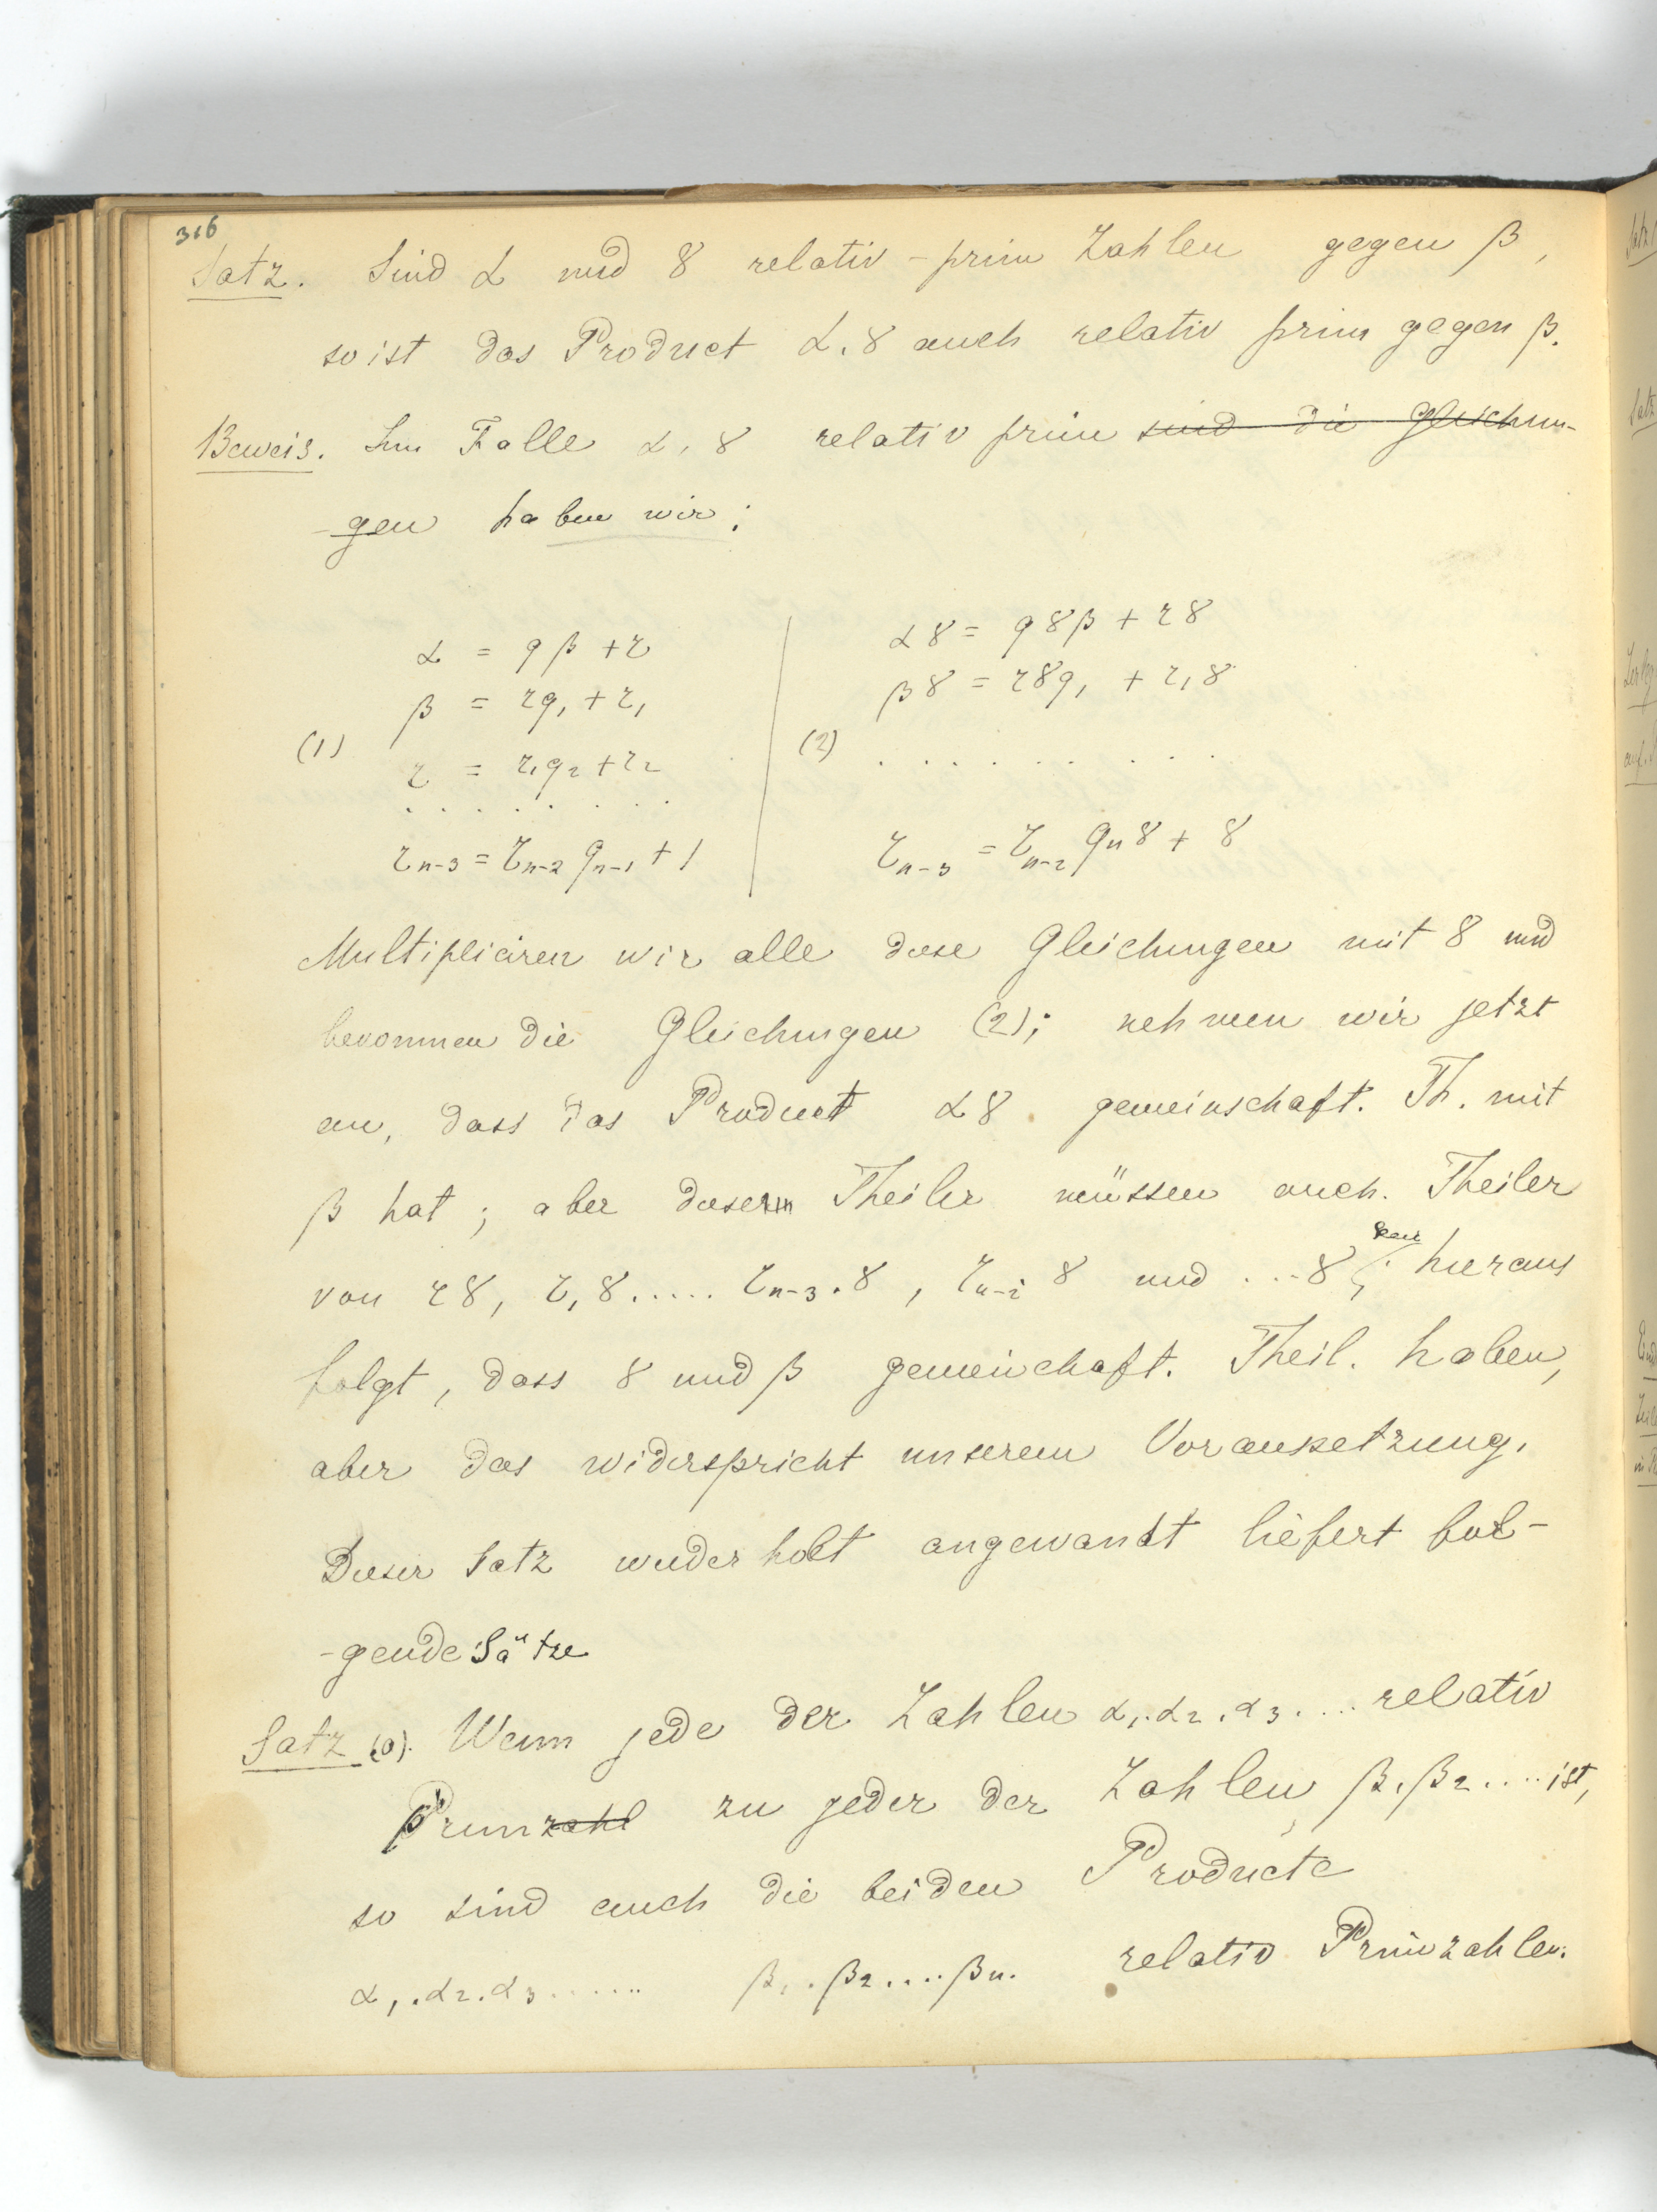 316
Satz. Sind α und γ relativ-prim Zahlen gegen β,
so ist das Product α.γ auch relativ prim gegen β.
Beweis. Im Falle α, γ relativ prim sind die Gleichun-
-gen haben wir:
α = qβ + r
β = rq₁ + r₁
(1)
r = r₁q₂ + r₂
. . . . . . . .
rₙ₋₃ = rₙ₋₂ qₙ₋₁ + 1
αγ = qγβ + rγ
βγ = rγq₁ + r₁γ
(2) . . . . . . . . .
rₙ₋₃ = rₙ₋₂ qₙγ + γ
Multipliciren wir alle diese Gleichungen mit γ und
bekommen die Gleichungen (2); nehmen wir jetzt
an, dass das Product αγ gemeinschaft. Th. mit
β hat; aber dieser Theiler müssen auch Theiler
von rγ, r₁γ ..... rₙ₋₃.γ, rₙ₋₂ γ und ... γ ; hieraus
folgt, dass γ und β gemeinchaft. Theil. haben,
aber das widerspricht unserem Voraussetzung.
Dieser Satz wiederholt angewandt liefert fol-
-gende Sätze
Satz (a). Wenn jede der Zahlen α₁.α₂.α₃.... relativ
Primzahl zu jeder der Zahlen β.β₂.... ist,
so sind auch die beiden Producte
α₁.α₂.α₃...... β₁.β₂....βₙ. relativ Primzahlen.